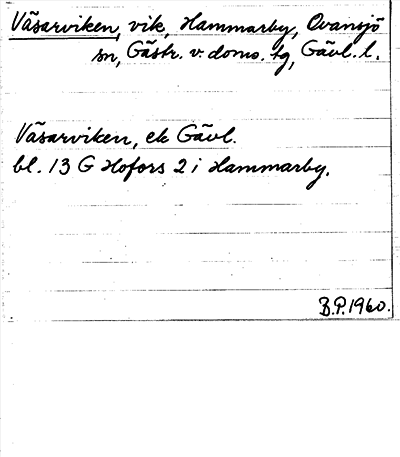 Väsarviken, vik, Hammarby, Ovansjö
sn, Gästr. v. doms. tg, Gävl. l.
Väsarviken, ek Gävl.
bl. 13 G Hofors 2 i Hammarby.
B.P. 1960.